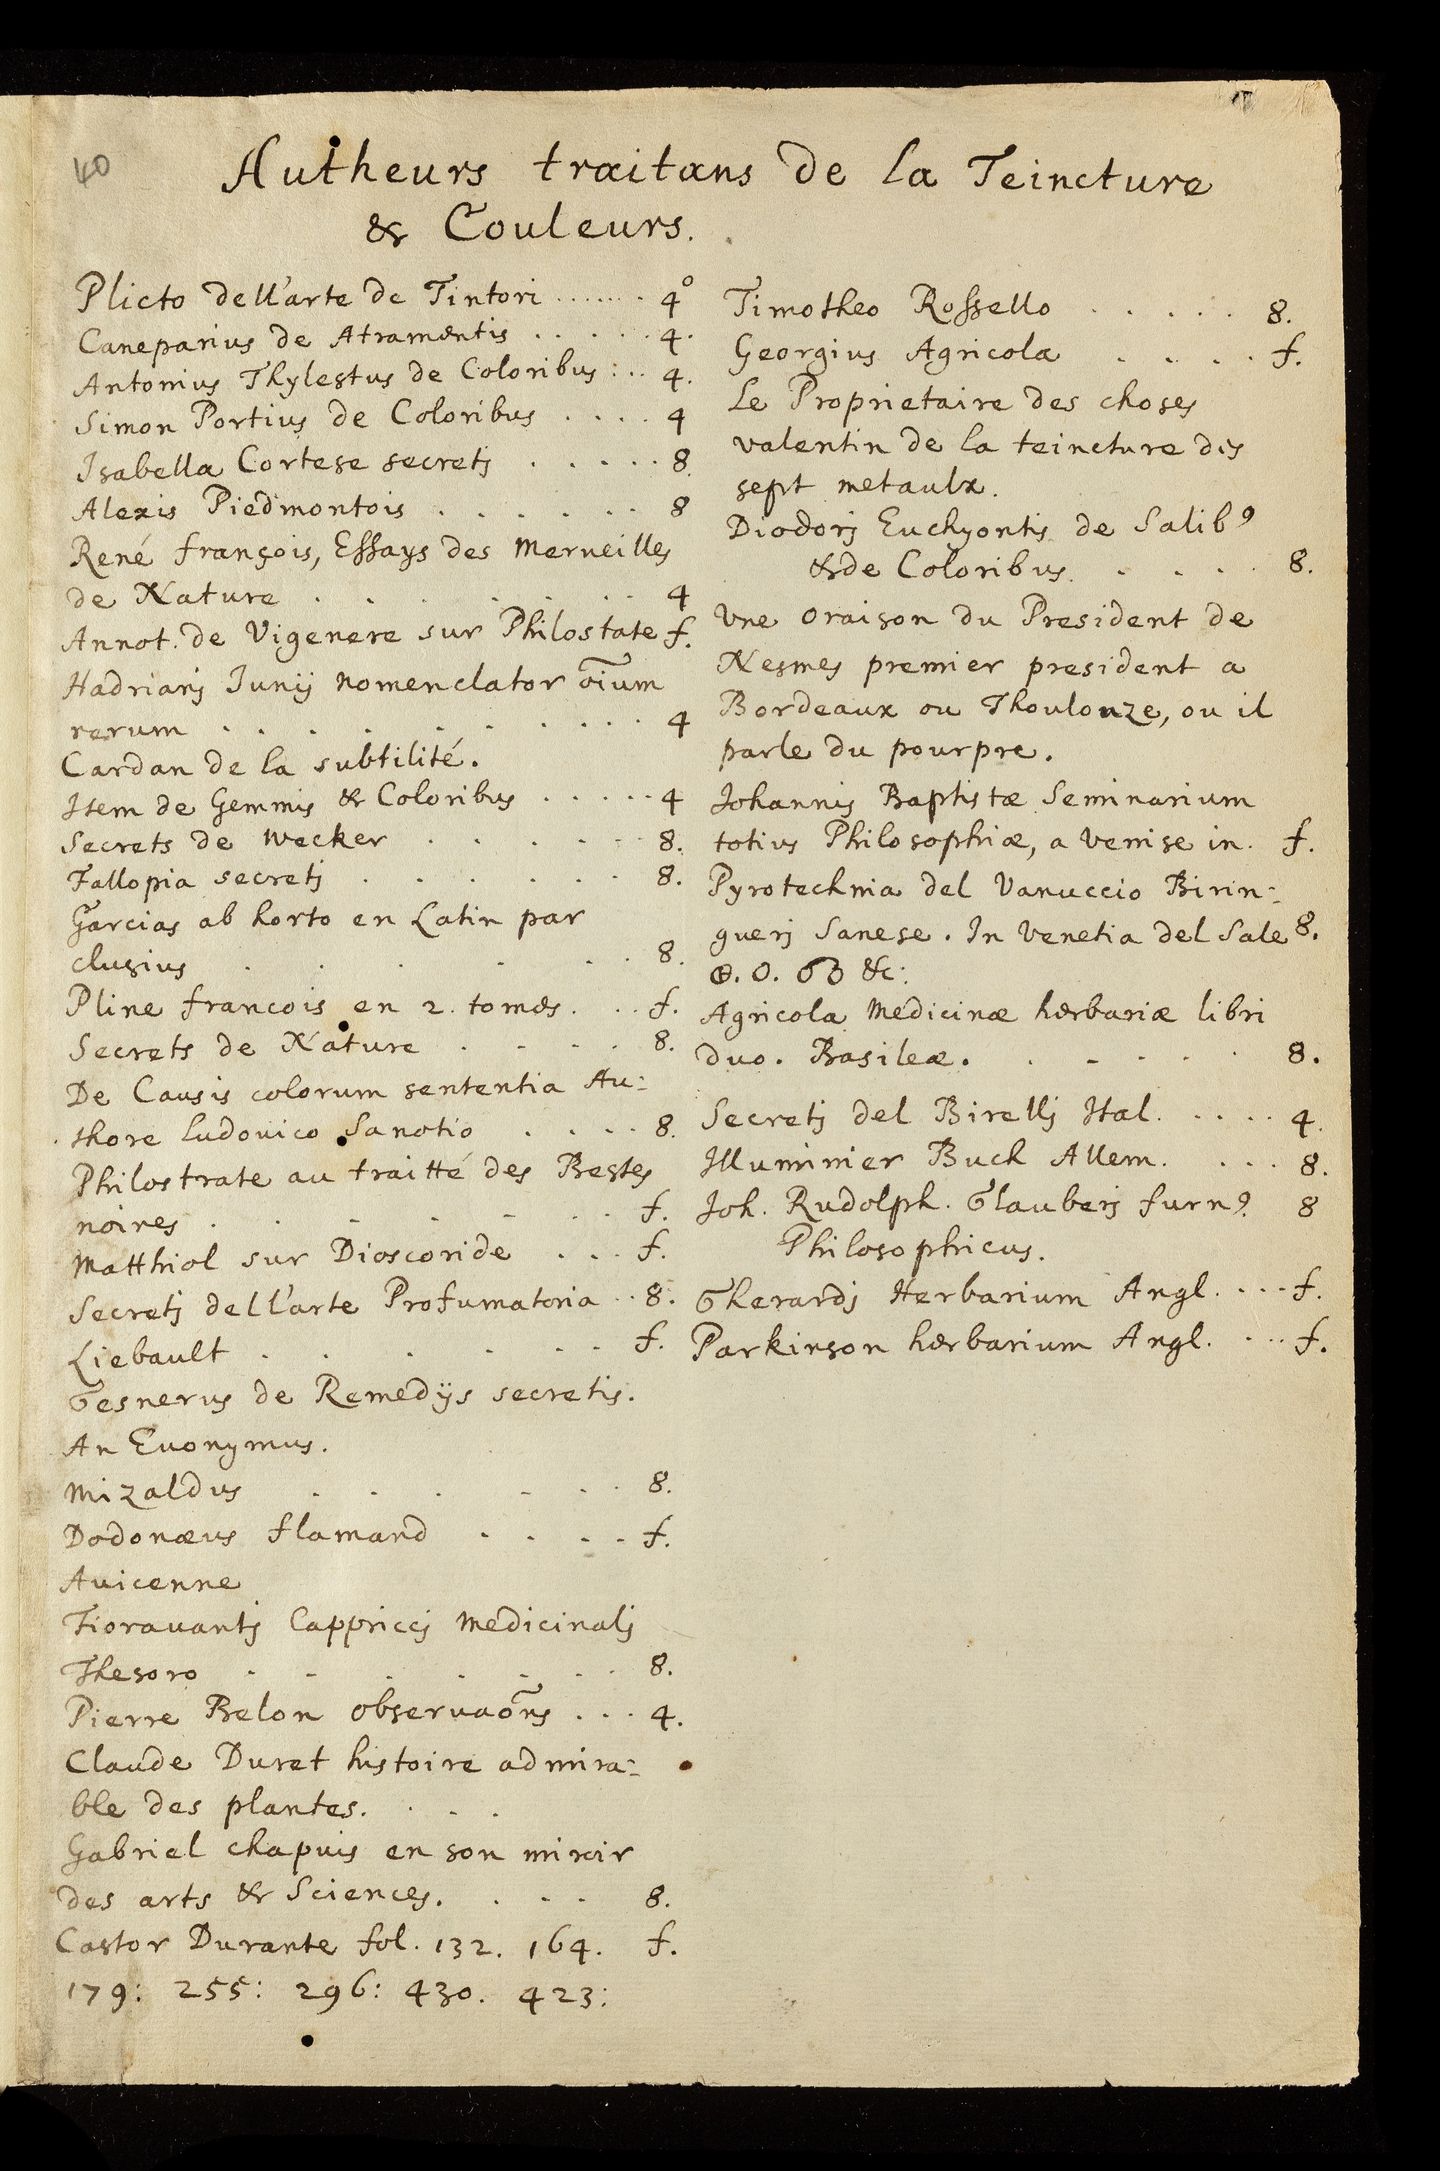 40
Autheurs traitans de la Teincture
& Couleurs.
Plicto dell'arte de Tintori ....... 4º
Caneparius de Atramentis ...... 4.
Antonius Thylestus de Coloribus : .. 4.
Simon Portius de Coloribus .... 4
Isabella Cortese secretj ..... 8.
Alexis Piedmontois ...... 8
René françois, Essays des Merueilles
de Nature ....... 4
Annot. de Vigenere sur Philostate f.
Hadrianj Junij nomenclator oium
rerum ........ 4
Cardan de la subtilité.
Item de Gemmis & Coloribus ..... 4
Secrets de Wecker ..... 8.
Fallopia secretj ...... 8.
Garcias ab horto en Latin par
clusius ...... 8.
Pline francois en 2. tomes. .. f.
Secrets de Nature .... 8.
De Causis colorum sententia Au:
thore ludouico Sanotio .... 8.
Philostrate au traitté des Bestes
noires ....... f.
Matthiol sur Dioscoride ... f.
Secretj dell'arte Profumatoria .. 8.
Liebault ...... f.
Gesnerus de Remedijs secretis.
An Euonymus.
Mizaldus ...... 8.
Dodonæus flamand .... f.
Auicenne
Fiorauantj Cappriccj Medicinalj
Thesoro ....... 8.
Pierre Belon obseruaons ... 4.
Claude Duret histoire admira:
ble des plantes. ...
Gabriel chapuis en son miroir
des arts & Sciences. ... 8.
Castor Durante fol. 132. 164. f.
179: 255: 296: 430. 423:
Timotheo Rossello ..... 8.
Georgius Agricola .... f.
Le Proprietaire des choses
valentin de la teincture des
sept metaulx.
Diodorj Euchyontis de Salib9
& de Coloribus. .... 8.
Vne oraison du President de
Nesmes premier president a
Bordeaux ou Thoulonze, ou il
parle du pourpre.
Johannis Baptistæ Seminarium
totius Philosophiæ, a Venise in. f.
Pyrotechnia del Vanuccio Birin:
guerj Sanese. In Venetia del Sale 8.
&c:
Agricola Medicinæ herbariæ libri
duo. Basileæ. ..... 8.
Secretj del Birellj Ital. .... 4.
Illuminier Buch Allem. ... 8.
Joh. Rudolph. Glauberj furn9. 8
Philosophicus.
Gherardj Herbarium Angl. ... f.
Parkinson herbarium Angl. ... f.